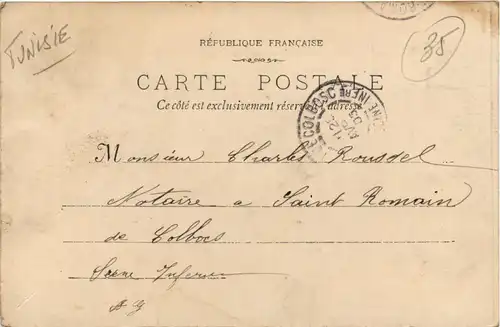 TUNISIE
35
RÉPUBLIQUE FRANÇAISE
CARTE POSTALE
Ce côté est exclusivement réservé à l'adresse
COLBOSC
INFRE
Monsieur Charles Roussel
Notaire a Saint Romain
de Colbocs
Seine Inferieu